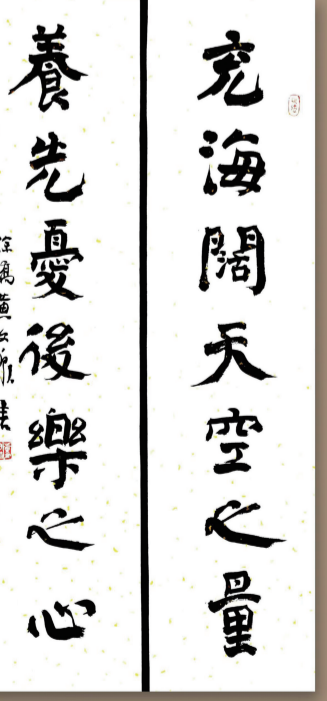 充海闊天空之量
養先憂後樂之心